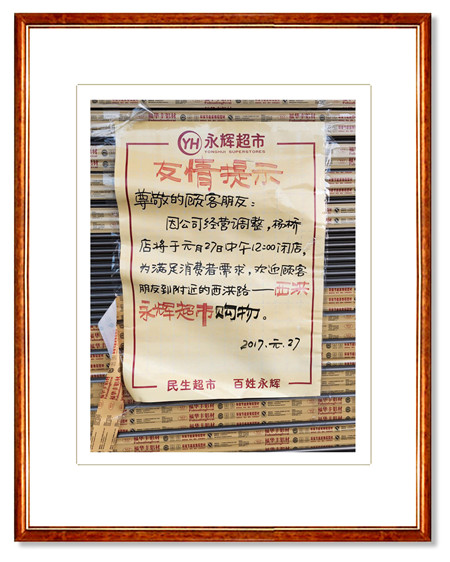 YH 永辉超市
YONGHUI SUPERSTORES
友情提示
尊敬的顾客朋友：
因公司经营调整，杨桥
店将于元月27日中午12:00闭店，
为满足消费者需求，欢迎顾客
朋友到附近的西洪路——西洪
永辉超市购物。
2017.元.27
民生超市 百姓永辉